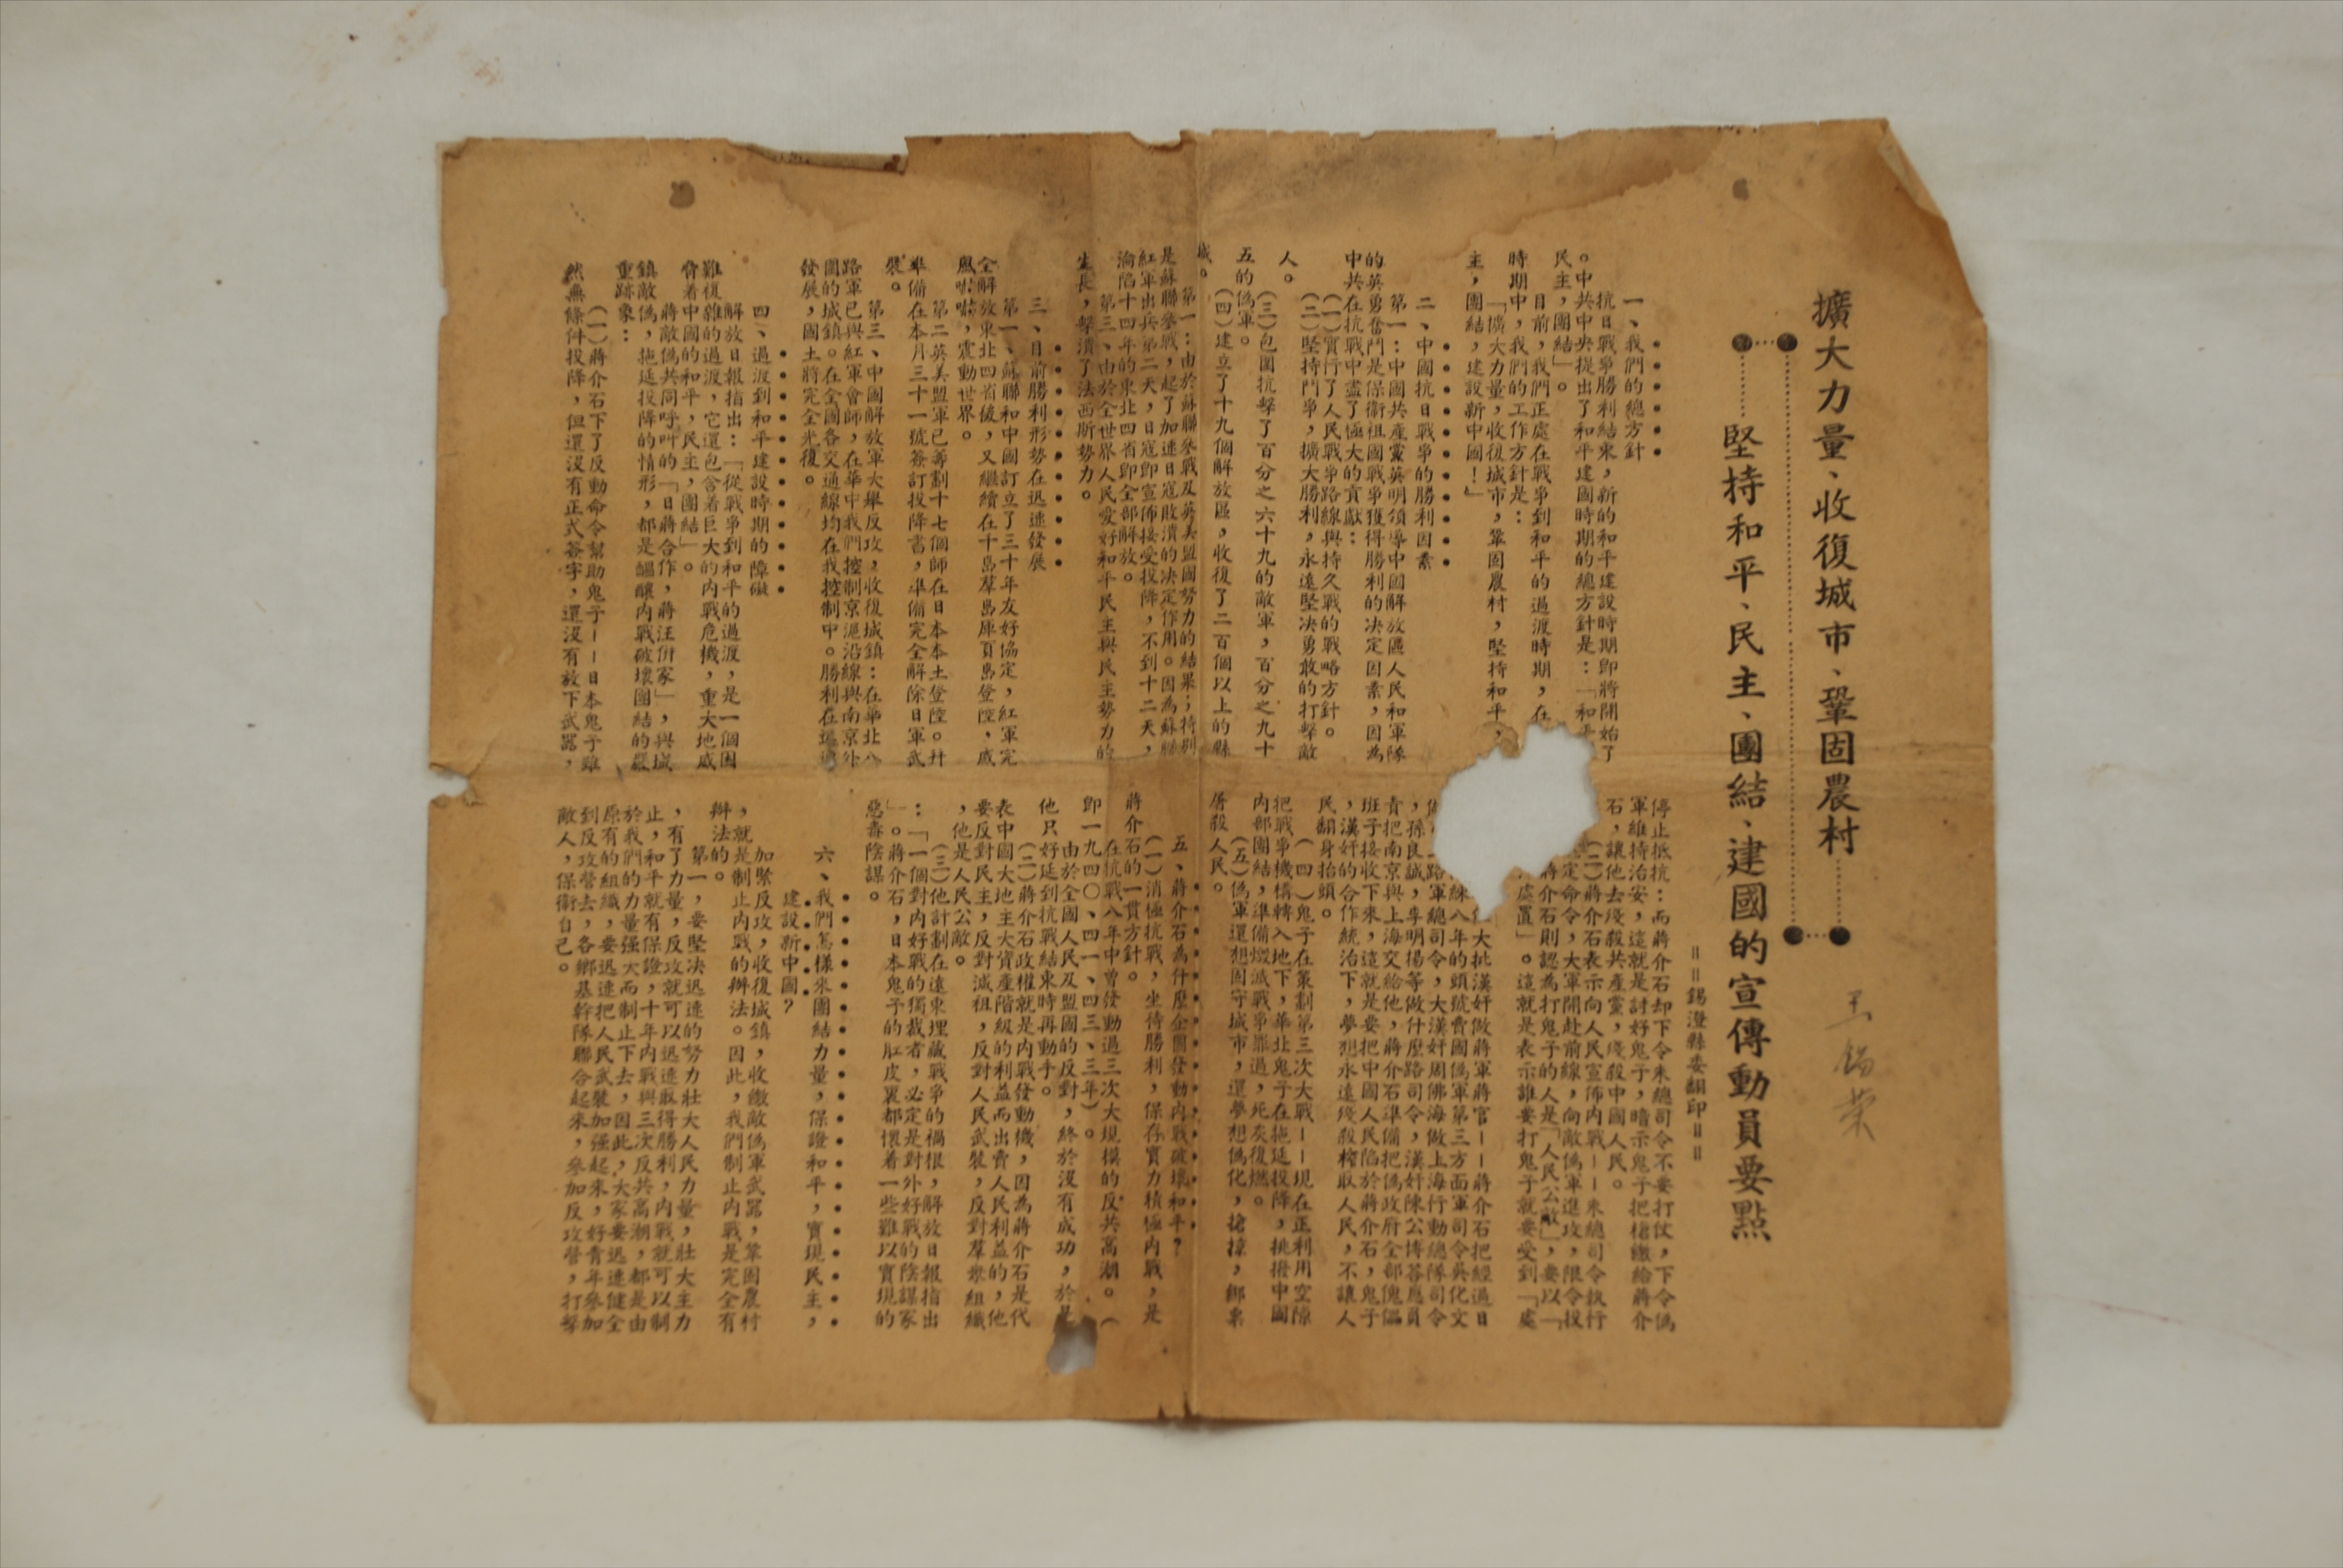 擴大力量、收復城市、鞏固農村
堅持和平、民主、團結、建國的宣傳動員要點
王錫榮
==錫澄縣委翻印==
一、我們的總方針
抗日戰爭勝利結束,新的和平建設時期即將開始了
。中共中央提出了和平建國時期的總方針是:「和平
民主,團結」。
目前,我們正處在戰爭到和平的過渡時期,在
時期中,我們的工作方針是:
「擴大力量,收復城市,鞏固農村,堅持和平,
主,團結,建設新中國!」
二、中國抗日戰爭的勝利因素
第一:中國共產黨英明領導中國解放區人民和軍隊
的英勇奮鬥是保衛祖國戰爭獲得勝利的決定因素,因為
中共在抗戰中盡了極大的貢獻:
(一)實行了人民戰爭路線與持久戰的戰略方針。
(二)堅持鬥爭,擴大勝利,永遠堅决勇敢的打擊敵
人。
(三)包圍抗擊了百分之六十九的敵軍,百分之九十
五的偽軍。
(四)建立了十九個解放區,收復了二百個以上的縣
城。
第二:由於蘇聯參戰及英美盟國努力的結果;特別
是蘇聯參戰,起了加速日寇敗潰的决定作用。因為蘇聯
紅軍出兵第二天,日寇即宣佈接受投降,不到十二天,
淪陷十四年的東北四省即全部解放。
第三、由於全世界人民愛好和平民主與民主勢力的
生長,擊潰了法西斯勢力。
三、目前勝利形勢在迅速發展
第一、蘇聯和中國訂立了三十年友好協定,紅軍完
全解放東北四省後,又繼續在千島羣島庫頁島登陸,威
風嚇嚇,震動世界。
第二英美盟軍已籌劃十七個師在日本本土登陸。并
準備在本月三十一號簽訂投降書,準備完全解除日軍武
裝。
第三、中國解放軍大舉反攻,收復城鎮:在華北八
路軍已與紅軍會師,在華中我們控制京滬沿線與南京外
圍的城鎮。在全國各交通線均在我控制中。勝利在迅速
發展,國土將完全光復。
四、過渡到和平建設時期的障礙
解放日報指出:「從戰爭到和平的過渡,是一個困
難復雜的過渡,它還包含着巨大的內戰危機,重大地威
脅着中國的和平,民主,團結」。
蔣敵偽共同呼叫的「日蔣合作,蔣汪併家」,與城
鎮敵偽,拖延投降的情形,都是醞釀內戰破壞團結的嚴
重跡象:
(一)蔣介石下了反動命令幫助鬼子——日本鬼子雖
然無條件投降,但還沒有正式簽字,還沒有放下武器,
停止抵抗:而蔣介石却下令朱總司令不要打仗,下令偽
軍維持治安,這就是討好鬼子,暗示鬼子把槍繳給蔣介
石,讓他去殘殺共產黨,殘殺中國人民。
(二)蔣介石表示向人民宣佈內戰——朱總司令執行
定命令,大軍開赴前線,向敵偽軍進攻,限令投
蔣介石則認為打鬼子的人是「人民公敵」,要以「
處置」。這就是表示誰要打鬼子就要受到「處
大批漢奸做蔣軍蔣官——蔣介石把經過日
練八年的頭號賣國偽軍第三方面軍司令吳化文
路軍總司令,大漢奸周佛海做上海行動總隊司令
,孫良誠,李明揚等做什麼路司令,漢奸陳公博答應負
責把南京與上海交給他,蔣介石準備把偽政府全部傀儡
班子接收下來,這就是要把中國人民陷於蔣介石,鬼子
,漢奸的合作統治下,夢想永遠殘殺榨取人民,不讓人
民翻身抬頭。
(四)鬼子在策劃第三次大戰——現在正利用空隙
把戰爭機構轉入地下,華北鬼子在拖延投降,挑撥中國
內部團結,準備燬滅戰爭罪過,死灰復燃。
(五)偽軍還想固守城市,還夢想偽化,搶掠,鄉里
屠殺人民。
五、蔣介石為什麼企圖發動內戰破壞和平?
(一)消極抗戰,坐待勝利,保存實力積極內戰,是
蔣介石的一貫方針。
在抗戰八年中曾發動過三次大規模的反共高潮。(
即一九四〇、四一、四三、三年)。
由於全國人民及盟國的反對,終於沒有成功,於是
他只好延到抗戰結束時再動手。
(二)蔣介石政權就是內戰發動機,因為蔣介石是代
表中國大地主大資產階級的利益而出賣人民利益的,他
要反對民主,反對減租,反對人民武裝,反對羣眾組織
,他是人民公敵。
(三)他計劃在遠東埋藏戰爭的禍根,解放日報指出
:「一個對內好戰的獨裁者,必定是對外好戰的陰謀家
」。蔣介石,日本鬼子的肚皮裏都懷着一些難以實現的
惡毒陰謀。
六、我們怎樣來團結力量,保證和平,實現民主,
建設新中國?
加緊反攻,收復城鎮,收繳敵偽軍武器,鞏固農村
,就是制止內戰的辦法。因此,我們制止內戰是完全有
辦法的。
第一,要堅决迅速的努力壯大人民力量,壯大主力
,有了力量,反攻就可以迅速取得勝利,內戰就可以制
止,和平就有保證,十年內戰與三次反共高潮,都是由
於我們的力量强大而制止下去,因此,大家要迅速健全
原有的組織,要迅速把人民武裝加强起來,好青年參加
到反攻營去,各鄉基幹隊聯合起來,參加反攻營,打擊
敵人,保衛自己。